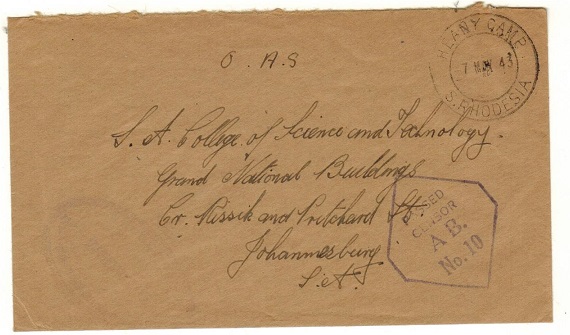 O.A.S
HEANY CAMP
7 MAY 43
S. RHODESIA
S.A. College of Science and Technology.
Grand National Buildings
Cr. Rissik and Pritchard St.
Johannesburg
S.A.
PASSED
CENSOR
A.B.
No. 10